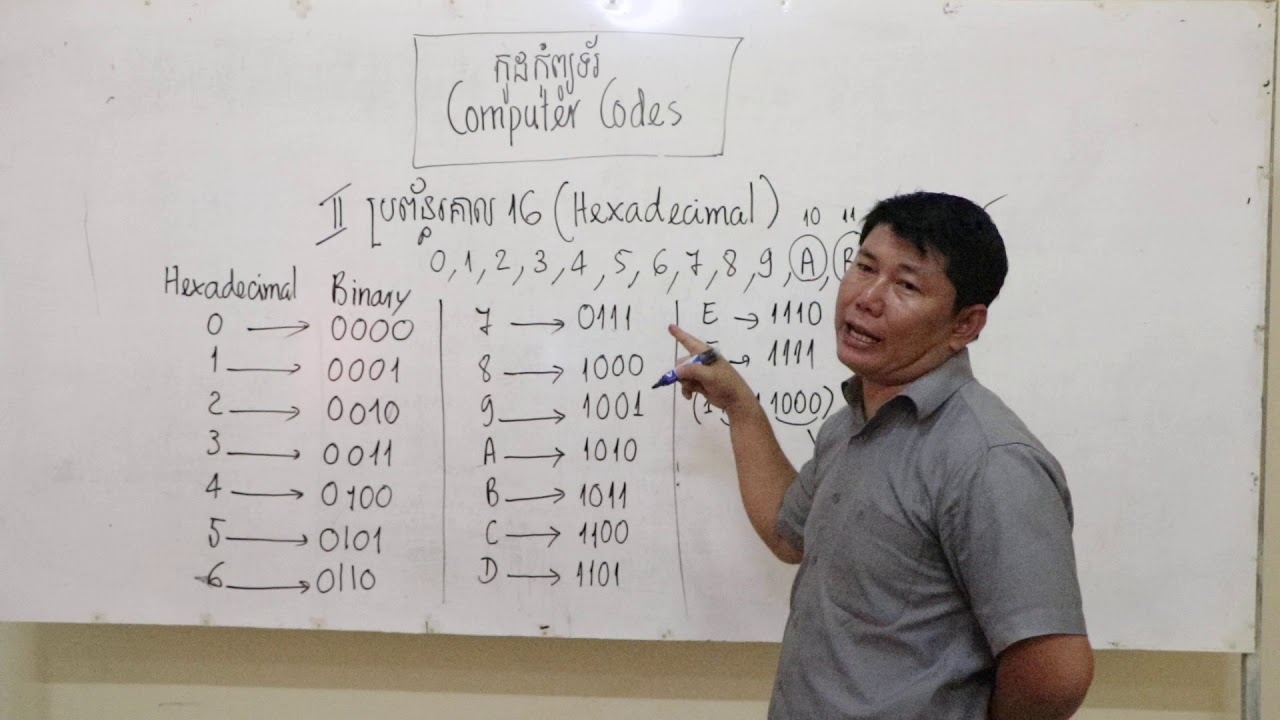 កូដកុំព្យូទ័រ
Computer Codes
II ប្រព័ន្ធគោល 16 (Hexadecimal)
10 11
0, 1, 2, 3, 4, 5, 6, 7, 8, 9, A, B
Hexadecimal Binary
0 → 0000
1 → 0001
2 → 0010
3 → 0011
4 → 0100
5 → 0101
6 → 0110
7 → 0111
8 → 1000
9 → 1001
A → 1010
B → 1011
C → 1100
D → 1101
E → 1110
→ 1111
1000)